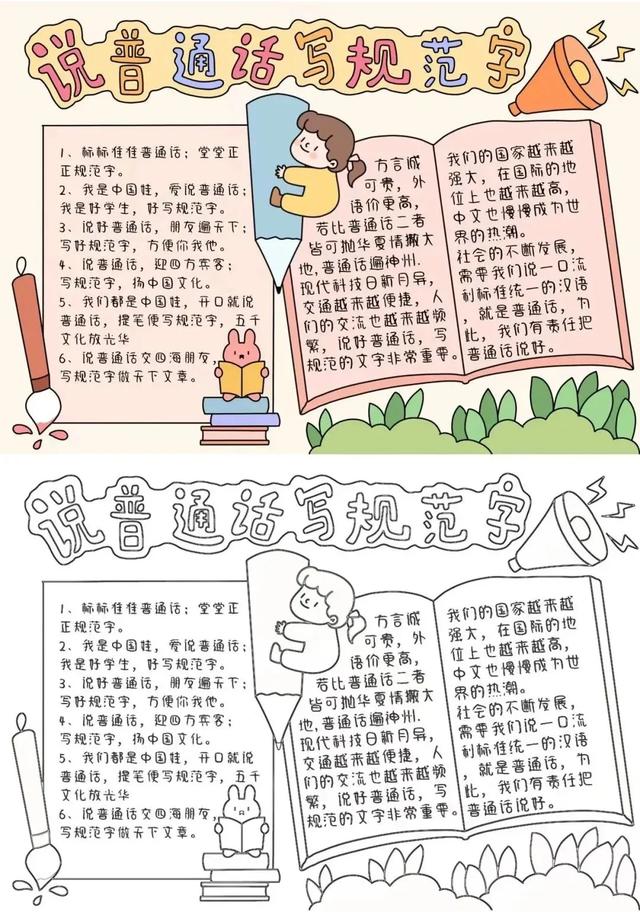 说普通话写规范字
1、标标佳佳普通话；堂堂正
正规范字。
2、我是中国娃，爱说普通话；
我是好学生，好写规范字。
3、说好普通话，朋友遍天下；
写好规范字，方便你我他。
4、说普通话，迎四方宾客；
写规范字，扬中国文化。
5、我们都是中国娃，开口就说
普通话，提笔便写规范字，五千
文化放光华
6、说普通话交四海朋友，
写规范字做天下文章。
方言诚
可贵，外
语价更高，
若比普通话二者
皆可抛华夏情搬大
地,普通话遍神州.
现代科技日新月异，
交通越来越便捷，人
们的交流也越来越频
繁，说好普通话，写
规范的文字非常重要。
我们的国家越来越
强大，在国际的地
位上也越来越高，
中文也慢慢成为世
界的热潮。
社会的不断发展，
需要我们说一口流
利标准统一的汉语
，就是普通话，为
此，我们有责任把
普通话说好。
说普通话写规范字
1、标标佳佳普通话；堂堂正
正规范字。
2、我是中国娃，爱说普通话；
我是好学生，好写规范字。
3、说好普通话，朋友遍天下；
写好规范字，方便你我他。
4、说普通话，迎四方宾客；
写规范字，扬中国文化。
5、我们都是中国娃，开口就说
普通话，提笔便写规范字，五千
文化放光华
6、说普通话交四海朋友，
写规范字做天下文章。
方言诚
可贵，外
语价更高，
若比普通话二者
皆可抛华夏情搬大
地,普通话遍神州.
现代科技日新月异，
交通越来越便捷，人
们的交流也越来越频
繁，说好普通话，写
规范的文字非常重要。
我们的国家越来越
强大，在国际的地
位上也越来越高，
中文也慢慢成为世
界的热潮。
社会的不断发展，
需要我们说一口流
利标准统一的汉语
，就是普通话，为
此，我们有责任把
普通话说好。